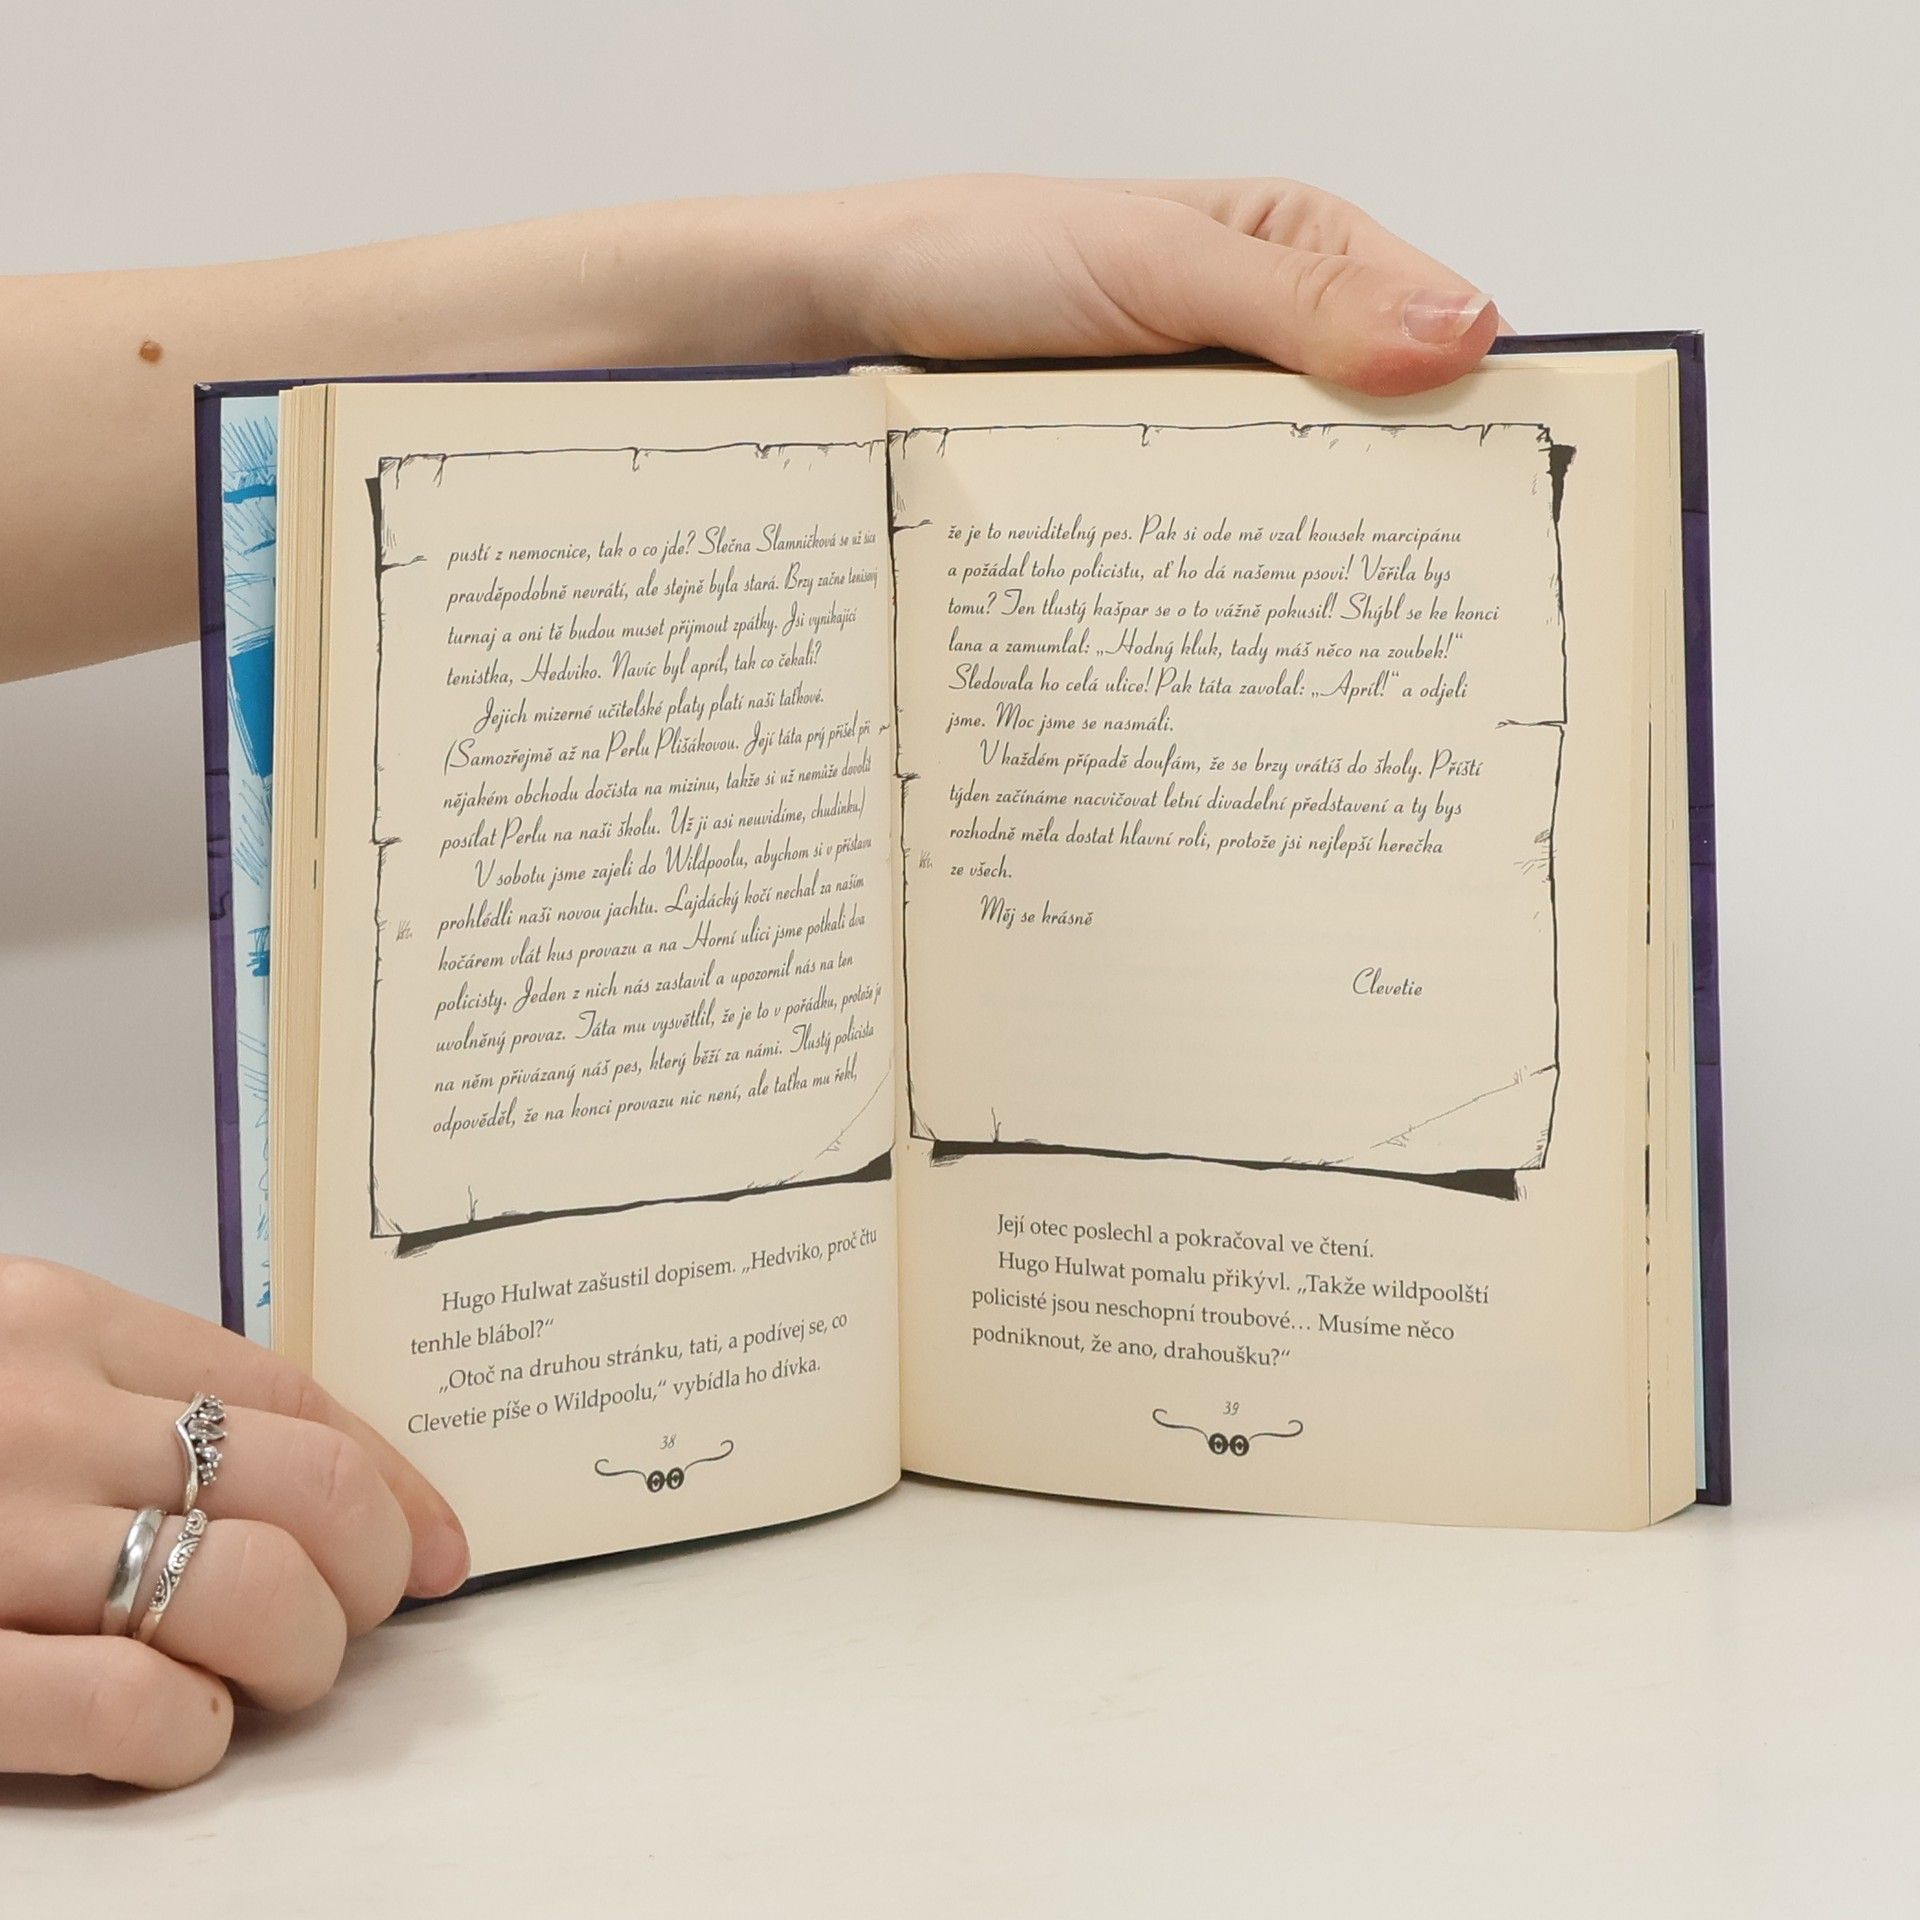 pustí z nemocnice, tak o co jde? Slečna Slamničková se už sice
pravděpodobně nevrátí, ale stejně byla stará. Brzy začne tenisový
turnaj a oni tě budou muset přijmout zpátky. Jsi vynikající
tenistka, Hedviko. Navíc byl apríl, tak co čekali?
Jejich mizerné učitelské platy platí naši taťkové.
(Samozřejmě až na Perlu Plišákovou. Její táta prý přišel při
nějakém obchodu dočista na mizinu, takže si už nemůže dovolit
posílat Perlu na naši školu. Už ji asi neuvidíme, chudinku.)
V sobotu jsme zajeli do Wildpoolu, abychom si v přístavu
prohlédli naši novou jachtu. Lajdácký kočí nechal za naším
kočárem vlát kus provazu a na Horní ulici jsme potkali dva
policisty. Jeden z nich nás zastavil a upozornil nás na ten
uvolněný provaz. Táta mu vysvětlil, že je to v pořádku, protože je
na něm přivázaný náš pes, který běží za námi. Tlustý policista
odpověděl, že na konci provazu nic není, ale taťka mu řekl,
Hugo Hulwat zašustil dopisem. „Hedviko, proč čtu
tenhle blábol?“
„Otoč na druhou stránku, tati, a podívej se, co
Clevetie píše o Wildpoolu,“ vybídla ho dívka.
38
že je to neviditelný pes. Pak si ode mě vzal kousek marcipánu
a požádal toho policistu, ať ho dá našemu psovi! Věřila bys
tomu? Ten tlustý kašpar se o to vážně pokusil! Shýbl se ke konci
lana a zamumlal: „Hodný kluk, tady máš něco na zoubek!“
Sledovala ho celá ulice! Pak táta zavolal: „Apríl!“ a odjeli
jsme. Moc jsme se nasmáli.
V každém případě doufám, že se brzy vrátíš do školy. Příští
týden začínáme nacvičovat letní divadelní představení a ty bys
rozhodně měla dostat hlavní roli, protože jsi nejlepší herečka
ze všech.
Měj se krásně
Clevetie
Její otec poslechl a pokračoval ve čtení.
Hugo Hulwat pomalu přikývl. „Takže wildpoolští
policisté jsou neschopní troubové… Musíme něco
podniknout, že ano, drahoušku?“
39